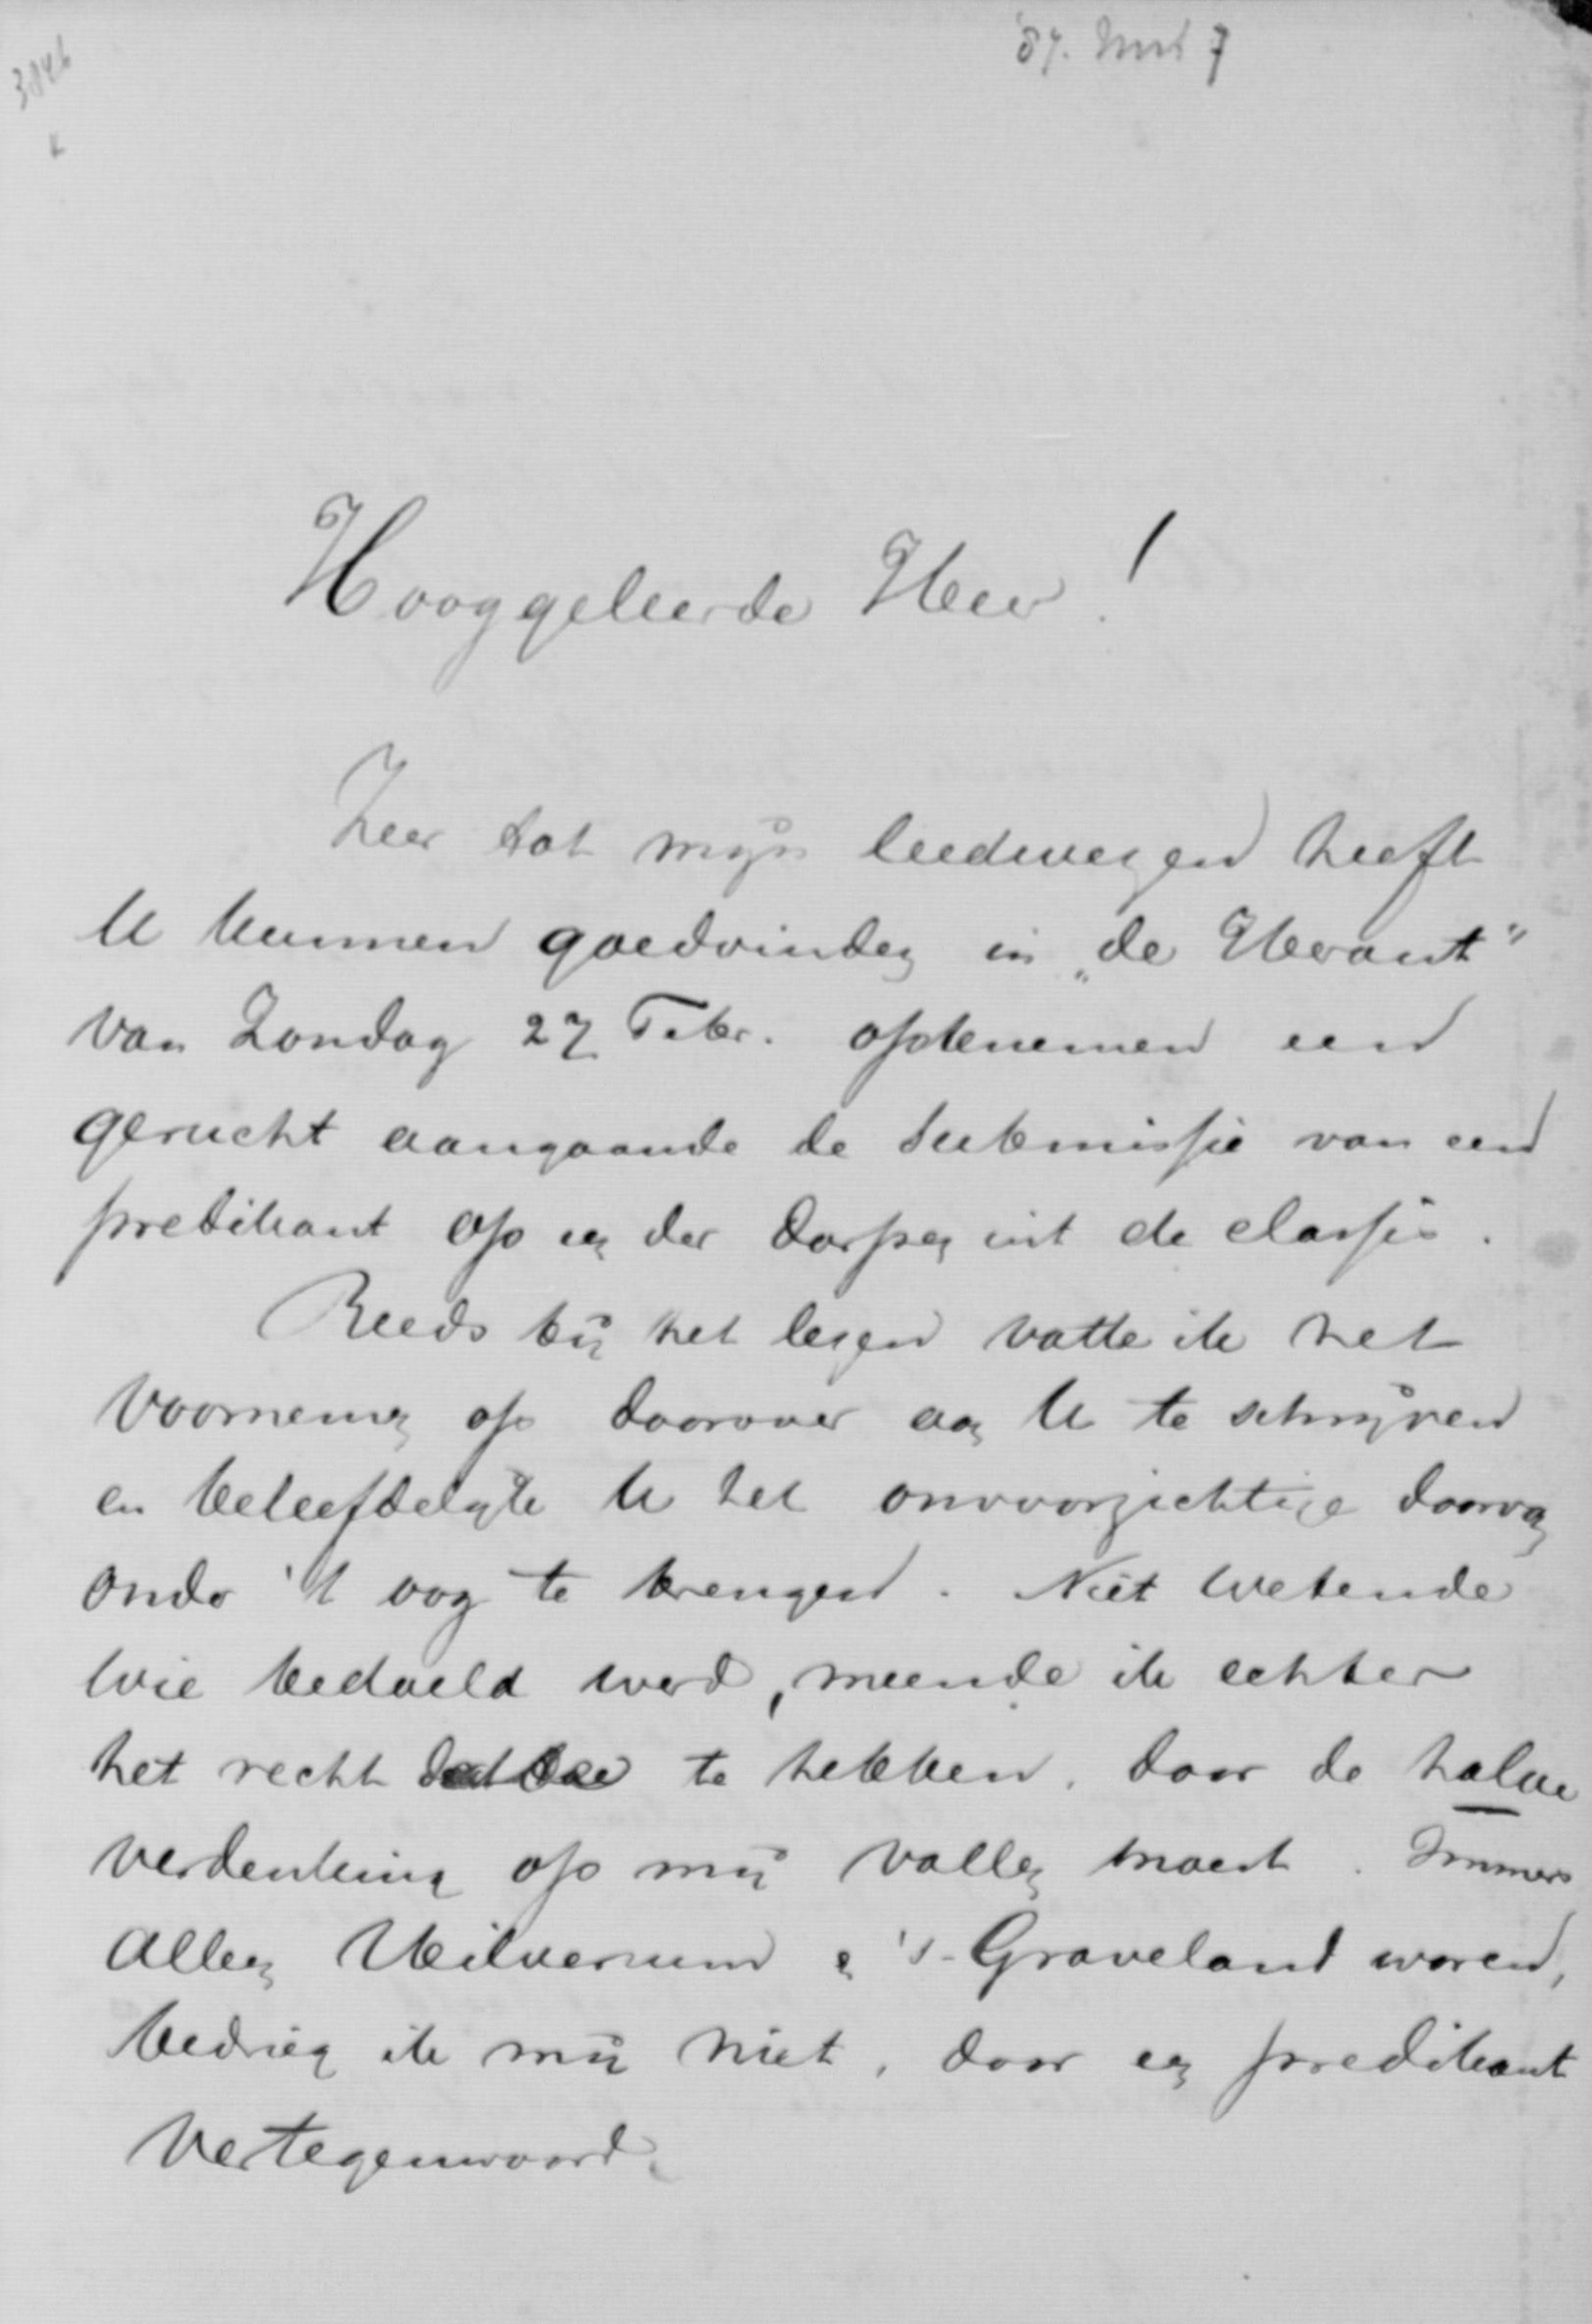 3846
'87. Mrt 7
Hooggeleerde Heer!
Zeer tot mijn leedwezen heeft
U kunnen goedvinden in „de Heraut"
van Zondag 27 Febr. optenemen een
gerucht aangaande de submissie van een
predikant op een der dorpen uit de classis.
Reeds bij het lezen vatte ik het
voornemen op daarover aan U te schrijven
en beleefdelijk U het onvoorzichtige daarvan
onder 't oog te brengen. Niet wetende
wie bedoeld werd, meende ik echter
het recht te hebben, daar de halve
verdenking op mij vallen moest. Immers
alleen Hilversum en 's-Graveland waren,
bedrieg ik mij niet, door een predikant
vertegenwoord.